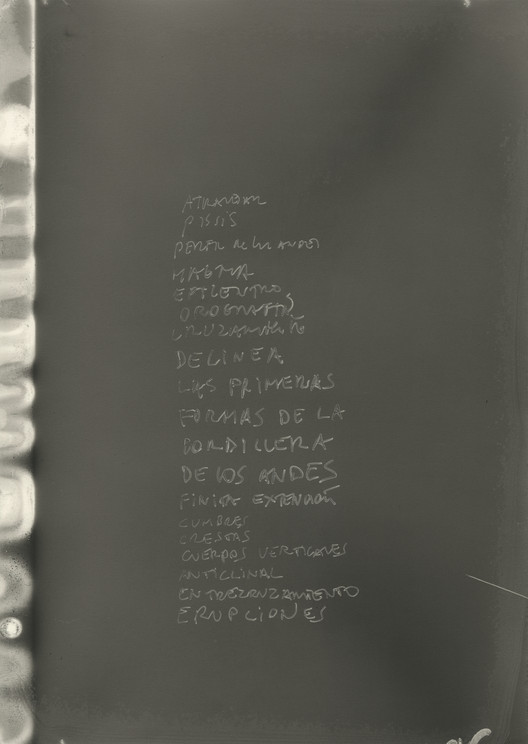 PISSIS
PERFIL DE LOS ANDES
MAGMA
EPICENTRO
OROGRAFIA
CRUZAMIENTO
DELINEA
LAS PRIMERAS
FORMAS DE LA
CORDILLERA
DE LOS ANDES
FINITA EXTENSIÓN
CUMBRES
CRESTAS
CUERPOS VERTICALES
ANTICLINAL
ENTRECRUZAMIENTO
ERUPCIONES